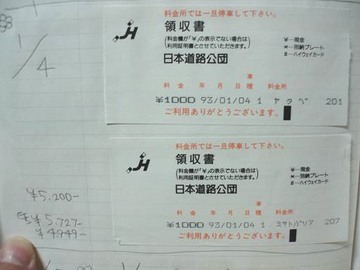 1/4
料金所では一旦停車して下さい。
JH
領収書
(料金欄が「¥」の表示でない場合は
利用証明書とさせていただきます。)
日本道路公団
¥…現金
※…別納プレート
#…ハイウェイカード
料金 年 月 日 車種 料金所
¥1000 93/01/04 1 201
ご利用ありがとうございます。
料金所では一旦停車して下さい。
JH
領収書
(料金欄が「¥」の表示でない場合は
利用証明書とさせていただきます。)
日本道路公団
¥…現金
※…別納プレート
#…ハイウェイカード
料金 年 月 日 車種 料金所
¥1000 93/01/04 1 207
ご利用ありがとうございます。
¥5.200-
¥5.727-
¥4949-